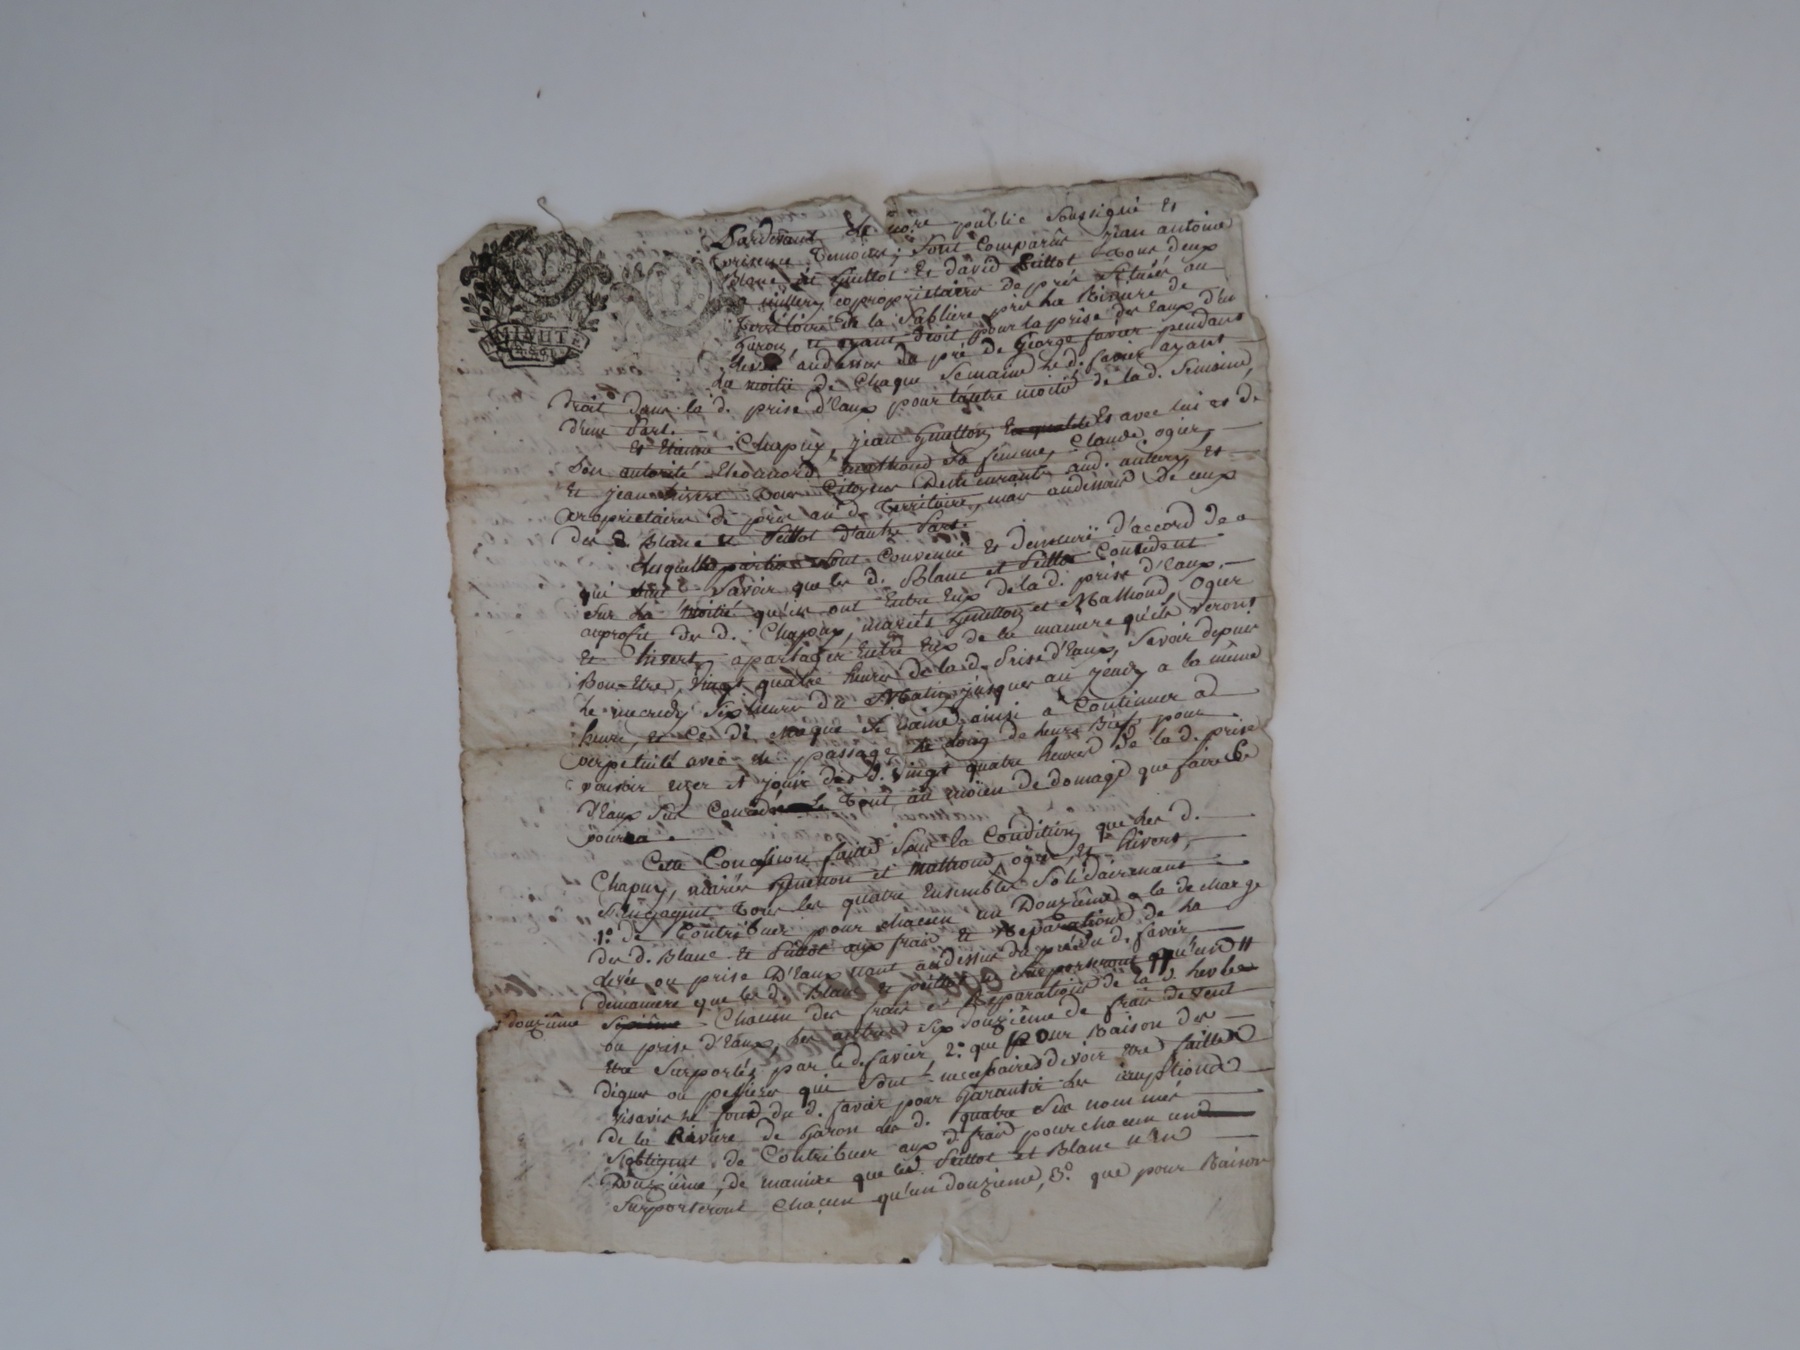 MINUT
Pardevant le no.re public soussigné et
témoins, sont comparus jean antoine
Blanc et david Peillot tous deux
copropriétaires de prés situés au
territoire de la Sablière près la Riviere de
garon, et ayant droit pour la prise des Eaux d'en
audessus du pré de George favier pendant
La moitié de Chaque Semaine le d. favier ayant
droit dans la d. prise d'Eaux pour l'autre moitié de la d. Semaine,
d'une part.
Et Chapuy, jean Guetton Et avec lui et de
son autorité mathoud sa femme, Claude ogier,
Et jean hivert tous Citoyens demeurants aud. Et
propriétaires de prés au d. territoire, mais audessous de ceux
des d. Blanc et Peillot d'autre Part
Lesquelles parties sont convenues Et demeuré d'accord de
qui suit Savoir que les d. Blanc et Peillot Concedent
sur la moitié qu'ils ont Entre Eux de la d. prise d'Eaux,
au profit des d. Chapuy, mariés Guetton et Mathoud, Ogier
Et hivert, a partager Entre Eux de la maniere qu'ils veront
Bon-Etre, vingt quatre heures de la d. Prise d'Eaux, Savoir depuis
le mecredy Six heures du Matin jusques au jeudy a la même
heure, et Ce de Chaque Semaine, ainsi a Continuer a
perpetuité avec le passage le long de leurs Biefs pour
pouvoir user et jouir des d. vingt quatre heures de la d. prise
d'Eaux sus Concedée le tout au moien de domage que faire Se
pourra.
Cette Concession faite sous la Condition que les d.
Chapuy, mariés Guetton et mathoud, ogier Et hivert,
S'engagent tous les quatre Ensembles Solidairement
1.° de Contribuer pour chacun un Douzième a la decharge
des d. Blanc Et Peillot aux frais Et Reparations de la
ou prise d'Eaux étant audessus du pré du d. favier
demaniere que les d. Blanc et peillot ne supporteront qu'un
douzième Septième Chacun des frais et Reparations de la d.
ou prise d'Eaux, les autres Six douzième de frais devant
etre Surportés par le d. favier, 2.° que pour Raison des
digues ou qui sont necessaires devoir être faittes
visavis le fond du d. favier pour Garantir les irruptions
de la Riviere de Garon les d. quatre Sus nommés
S'obligent de Contribuer aux d. frais pour chacun un
Douzième, de maniere que les Peillot et Blanc n'en
Surporteront Chacun qu'un douzieme, 3.° que pour Raison